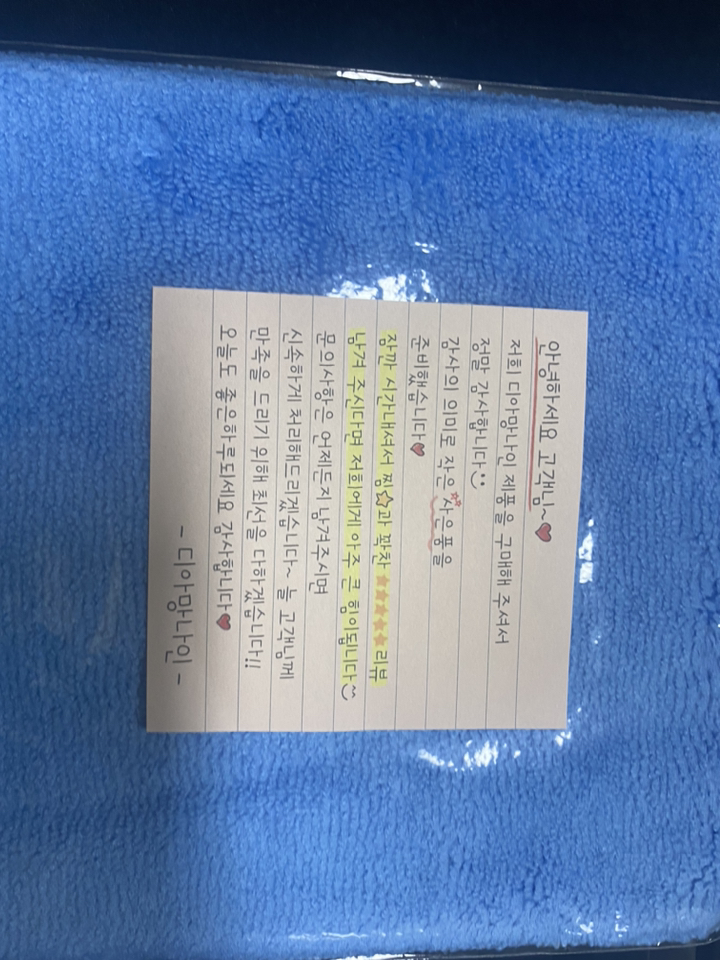 안녕하세요 고객님~♥
저희 디아망나인 제품을 구매해 주셔서
정말 감사합니다:)
감사의 의미로 작은 사은품을
준비했습니다♥
잠깐 시간내셔서 찜☆과 꽉찬 ★★★★★ 리뷰
남겨 주신다면 저희에게 아주 큰 힘이됩니다^^
문의사항은 언제든지 남겨주시면
신속하게 처리해드리겠습니다~ 늘 고객님께
만족을 드리기 위해 최선을 다하겠습니다!!
오늘도 좋은하루되세요 감사합니다♥
- 디아망나인 -